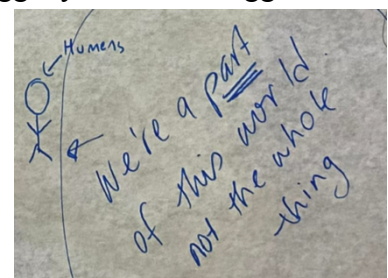 Humans
We're a part
of this world
not the whole
thing